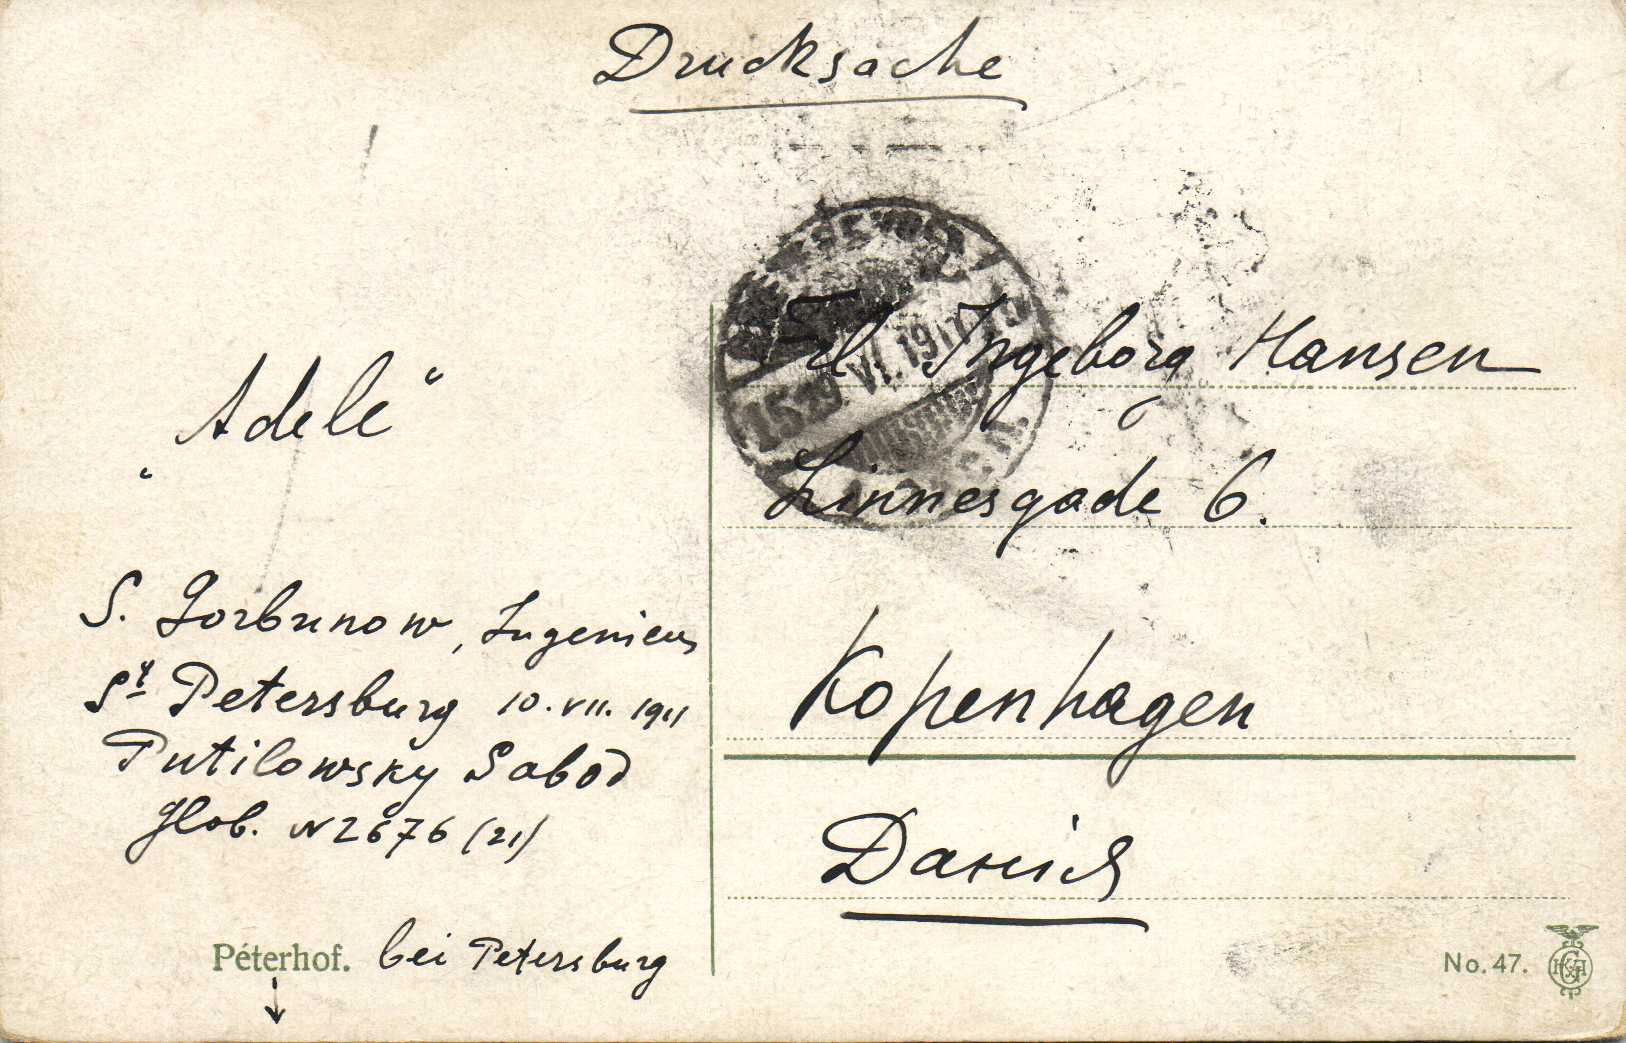 Drucksache
Frl. Ingeborg Hansen
Linnesgade 6.
Kopenhagen
Даніѧ
„Adele“
S. Gorbunow, Ingenieur
St Petersburg 10.VII.1911
Putilowsky Sabod
Glob. N2676 (21)
Péterhof. bei Petersburg
No. 47.